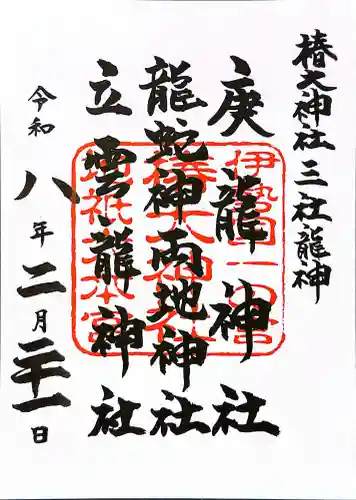 椿大神社 三社龍神
庚龍神社
龍蛇神両地神社
立雲龍神社
令和八年二月二十一日
伊勢国一の宮
椿大神社
地祇大本宮